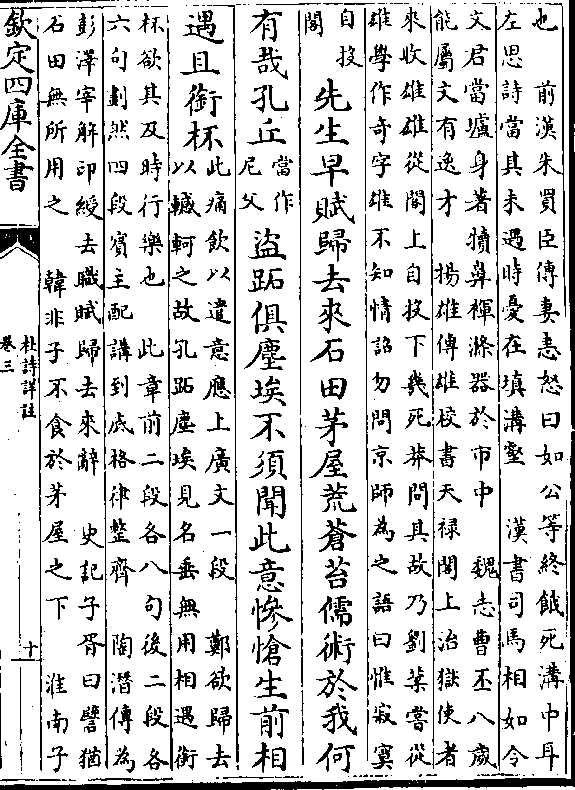 也　前漢朱買臣傳妻恚怒曰如公等終餓死溝中耳
左思詩當其未遇時憂在填溝壑　漢書司馬相如令
文君當壚身著犢鼻褌滌器於市中　魏志曹丕八歲
能屬文有逸才　楊雄傳雄校書天禄閣上治獄使者
來收雄雄從閣上自投下幾死莽問其故乃劉棻嘗從
雄學作奇字雄不知情詔勿問京師為之語曰惟寂寞
自投
閣
先生早賦歸去來石田茅屋荒蒼苔儒術於我何
有哉孔丘
當作
尼父
盜跖俱塵埃不須聞此意慘愴生前相
遇且銜杯
此痛飲以遣意應上廣文一段　鄭欲歸去
以轗軻之故孔跖塵埃見名垂無用相遇銜
杯欲其及時行樂也　此章前二段各八句後二段各
六句劃然四段賓主配講到底格律整齊　陶潛傳為
彭澤宰解印綬去職賦歸去來辭　史記子胥曰譬猶
石田無所用之　韓非子不食於茅屋之下　淮南子
欽定四庫全書
杜詩詳註
卷三
十